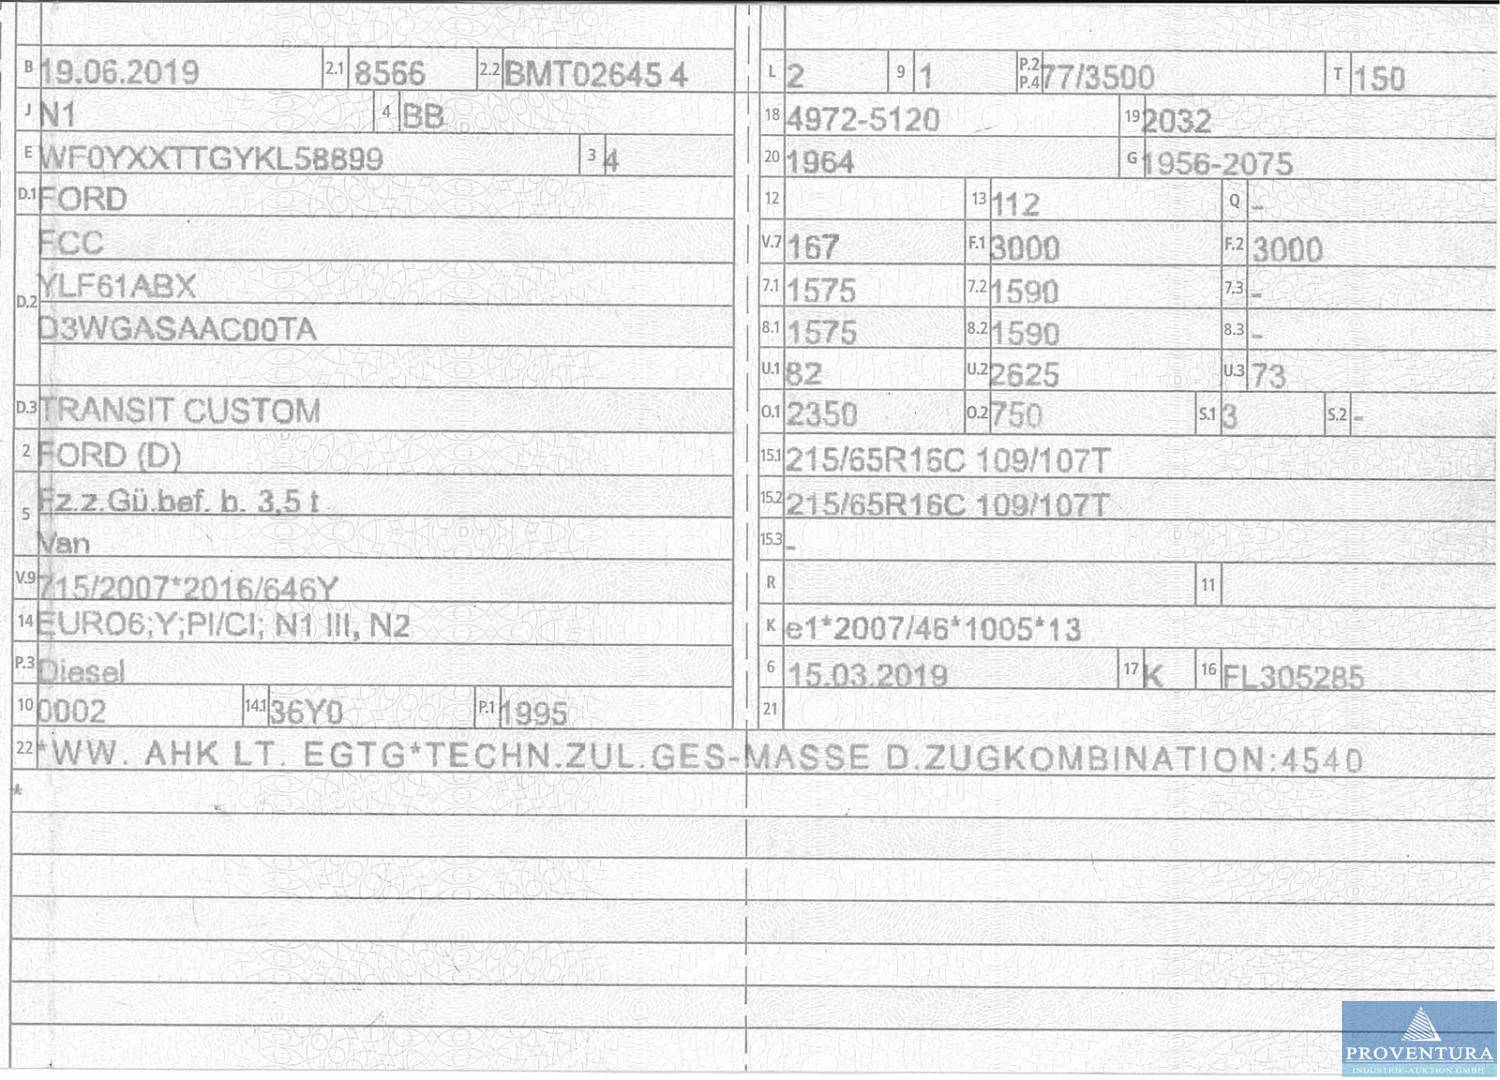 B 19.06.2019 2.1 8566 2.2 BMT02645 4
J N1 4 BB
E WF0YXXTTGYKL58899 3 4
D.1 FORD
FCC
D.2 YLF61ABX
D3WGASAAC00TA
D.3 TRANSIT CUSTOM
2 FORD (D)
5 Fz.z.Gü.bef. b. 3,5 t
Van
V.9 715/2007*2016/646Y
14 EURO6;Y;PI/CI; N1 III, N2
P.3 Diesel
10 0002 14.1 36Y0 P.1 1995
L 2 9 1 P.2 P.4 77/3500 T 150
18 4972-5120 19 2032
20 1964 G 1956-2075
12 13 112 Q -
V.7 167 F.1 3000 F.2 3000
7.1 1575 7.2 1590 7.3 -
8.1 1575 8.2 1590 8.3 -
U.1 82 U.2 2625 U.3 73
O.1 2350 O.2 750 S.1 3 S.2 -
15.1 215/65R16C 109/107T
15.2 215/65R16C 109/107T
15.3 -
R 11
K e1*2007/46*1005*13
6 15.03.2019 17 K 16 FL305285
21
22 *WW. AHK LT. EGTG*TECHN.ZUL.GES-MASSE D.ZUGKOMBINATION:4540
*
PROVENTURA
INDUSTRIE-AUKTION GMBH